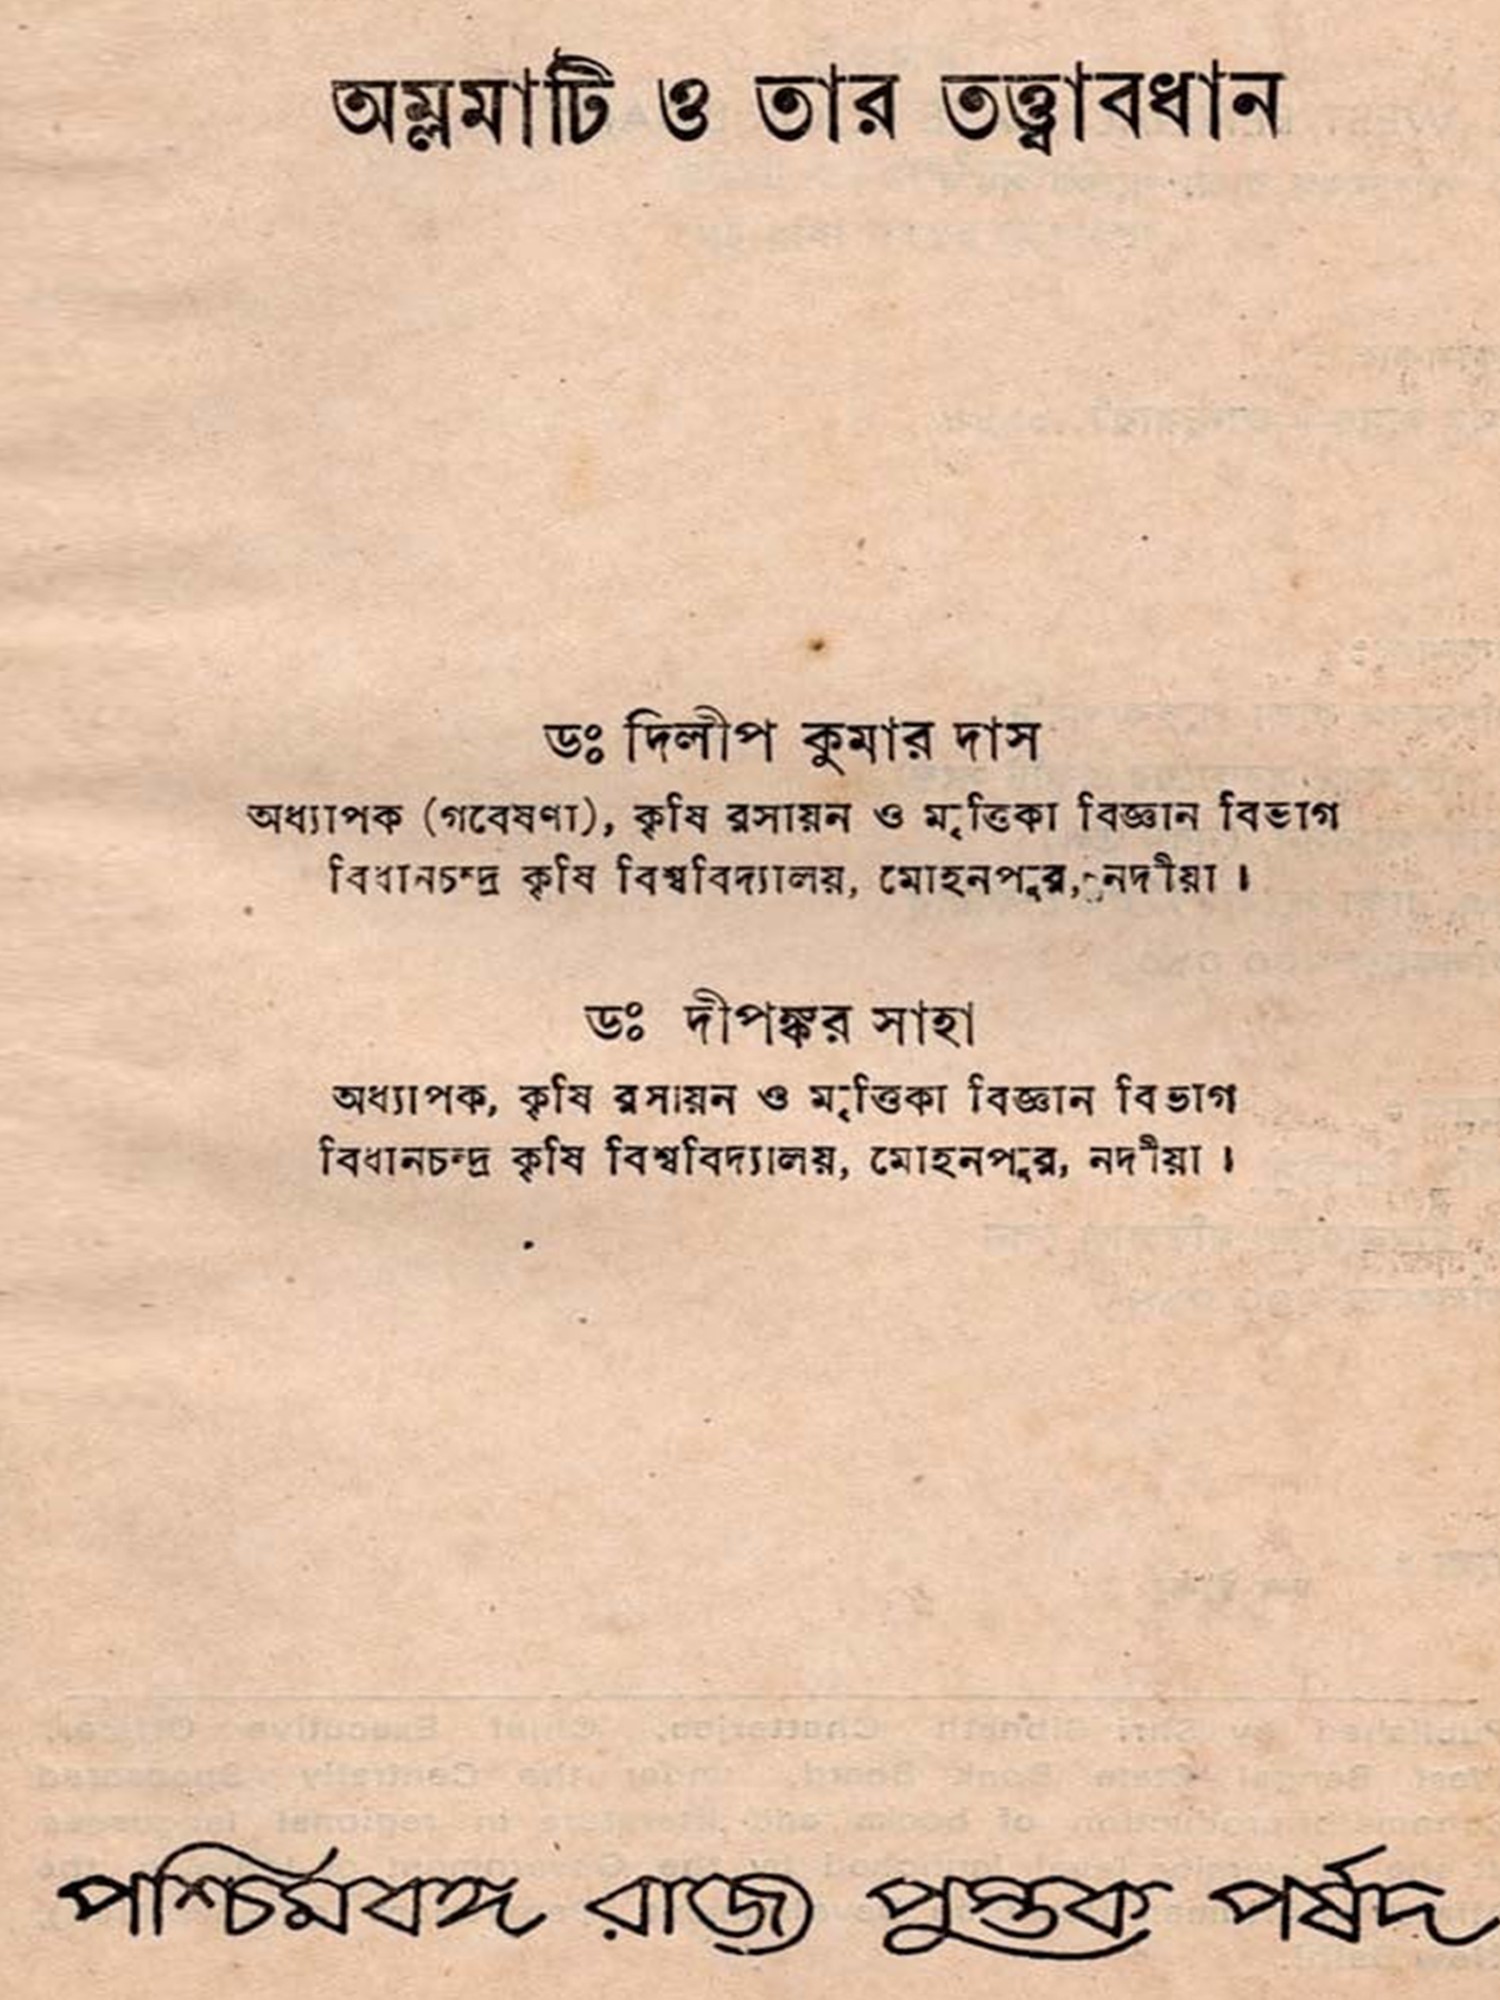 অম্লমাটি ও তার তত্ত্বাবধান
ডঃ দিলীপ কুমার দাস
অধ্যাপক (গবেষণা), কৃষি রসায়ন ও মৃত্তিকা বিজ্ঞান বিভাগ
বিধানচন্দ্র কৃষি বিশ্ববিদ্যালয়, মোহনপুর, নদীয়া ।
ডঃ দীপঙ্কর সাহা
অধ্যাপক, কৃষি রসায়ন ও মৃত্তিকা বিজ্ঞান বিভাগ
বিধানচন্দ্র কৃষি বিশ্ববিদ্যালয়, মোহনপুর, নদীয়া ।
পশ্চিমবঙ্গ রাজ্য পুস্তক পর্ষদ